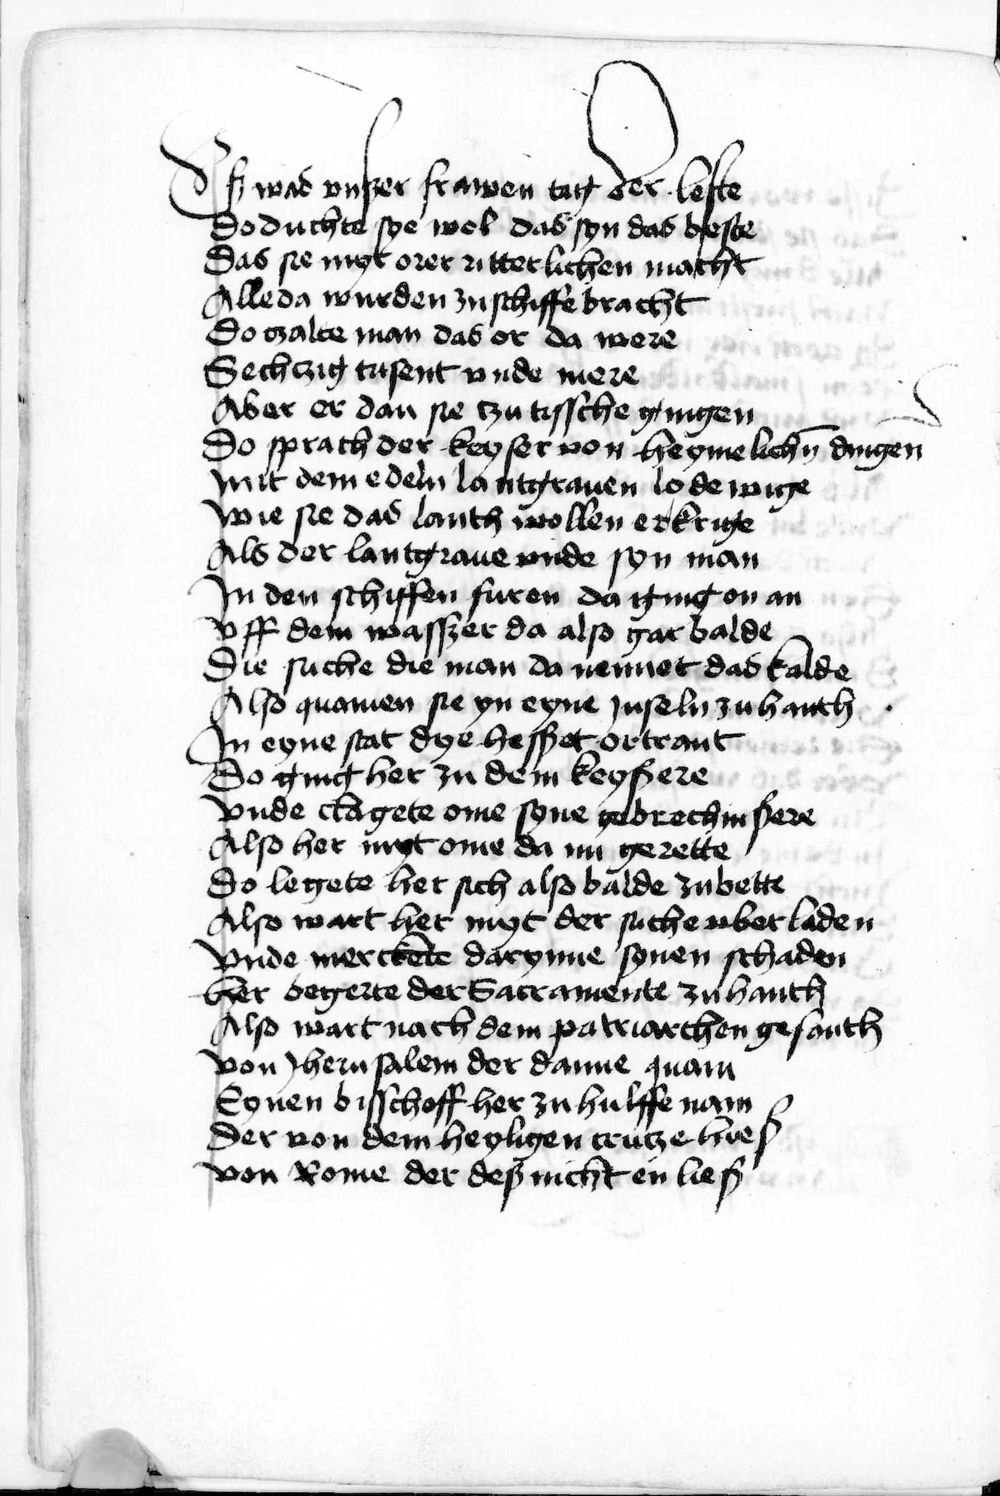 Eß was vnßer frawen tag der leste
Do duchte sye wol das syn das beste
Das sie myt orer ritterlichen macht
Alle da wurden zu schiffe bracht
Do tzalte man das or da were
Sechtzig tusent vnde mere
Aber er dan sie tzu tissche gingen
Do sprach der keyser von heymelichn̄ dingen
mit dem edeln lantgrauen lodewige
wie sie das lanth wollen erkrige
Als der lantgraue vnde syn man
In den schiffen furen da ging on an
vff dem wasszer da also gar balde
Die suche die man da nennet das kalde
Also quamen sie yn eyne Inseln zu hanth
In eyne stat dye heysset ortrant
Do ging her zu dem keyßere
vnde clagete ome syne gebrechin ßere
Also her myt ome da nu gerette
Do legete her sich also balde zu bette
Also wart her myt der suche vberladen
vnde merckete darynne synen schaden
her begerte der Sacramente zu hanth
Also wart nach dem patriarchen gesanth
von Jherusalem der danne quam
Eynen bisschoff her zu hulffe nam
Der von dem heyligen crutze hieß
von Rome der deß nicht en ließ